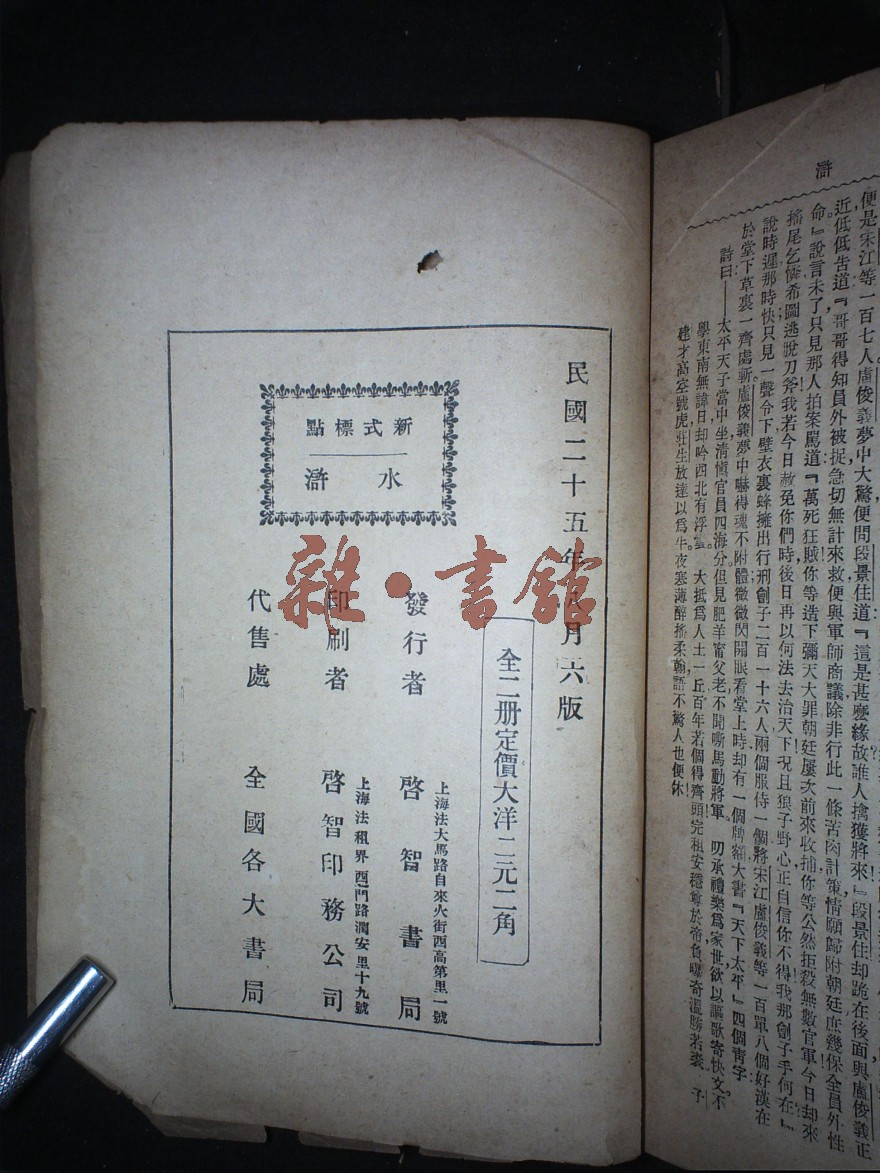 滸
便是宋江等一百七人盧俊義夢中大驚便問段景住道『這是甚麼緣故誰人擒獲將來』段景住却跪在後面與盧俊義正
近低低告道『哥哥得知員外被捉急切無計來救便與軍師商議除非行此一條苦肉計策情願歸附朝廷庶幾保全員外性
命』說言未了只見那人拍案罵道『萬死狂賊你等造下彌天大罪朝廷屢次前來收捕你等公然拒殺無數官軍今日却來
搖尾乞憐希圖逃脫刀斧我若今日赦免你們時後日再以何法去治天下况且狼子野心正自信你不得我那劊子手何在』
說時遲那時快只見一聲令下壁衣裏蜂擁出行刑劊子二百一十六人兩個服侍一個將宋江盧俊義等一百單八個好漢在
於堂下草裏一齊處斬盧俊義夢中嚇得魂不附體微微閃開眼看堂上時却有一個牌額大書『天下太平』四個靑字
詩曰——太平天子當中坐清愼官員四海分但見肥羊甯父老不聞嘶馬動將軍。 叨承禮樂爲家世欲以謳歌寄快文不
學東南無諱日却吟西北有浮雲。 大抵爲人土一丘百年若個得齊頭完租安穩尊於帝負曝奇溫勝若裘 子
建才高空號虎莊生放達以爲牛夜寒薄醉搖柔翰語不驚人也便休
民國二十五年八月六版
全二册定價大洋二元二角
新式標點
水滸
發行者
上海法大馬路自來火街西高第里一號
啓智書局
印刷者
上海法租界西門路潤安里十九號
啓智印務公司
代售處
全國各大書局
雜·書館